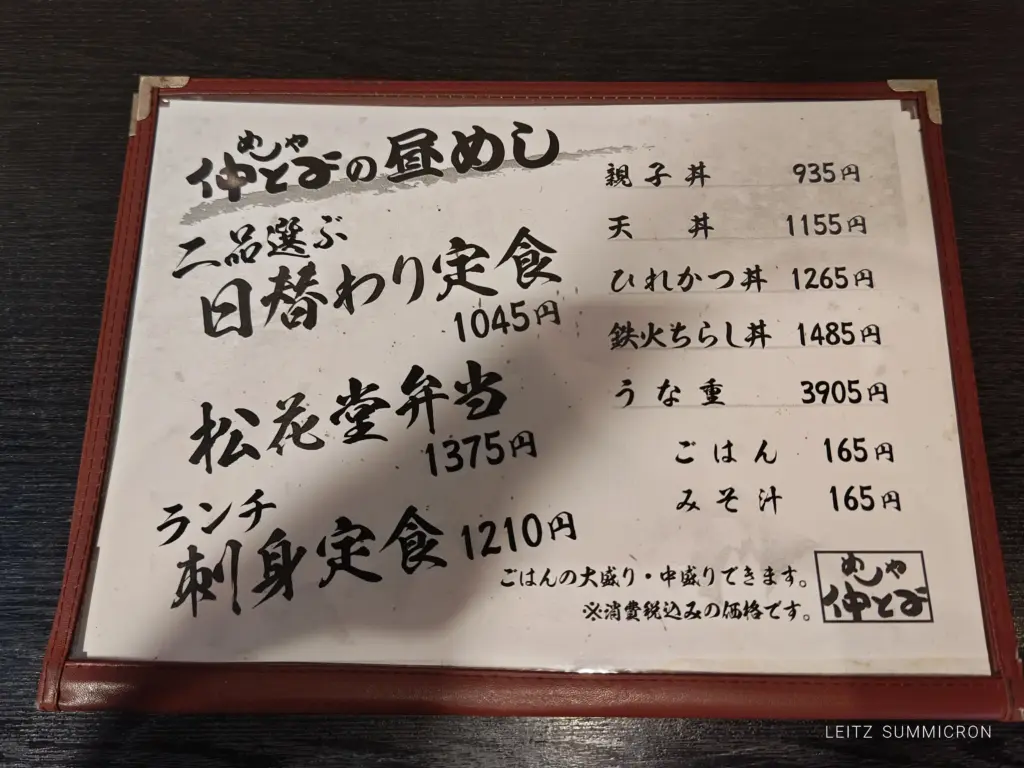 めしや
仲とみの昼めし
二品選ぶ
日替わり定食
1045円
松花堂弁当
1375円
ランチ
刺身定食 1210円
親子丼 935円
天丼 1155円
ひれかつ丼 1265円
鉄火ちらし丼 1485円
うな重 3905円
ごはん 165円
みそ汁 165円
ごはんの大盛り・中盛りできます。
※消費税込みの価格です。
めしや
仲とみ
LEITZ SUMMICRON